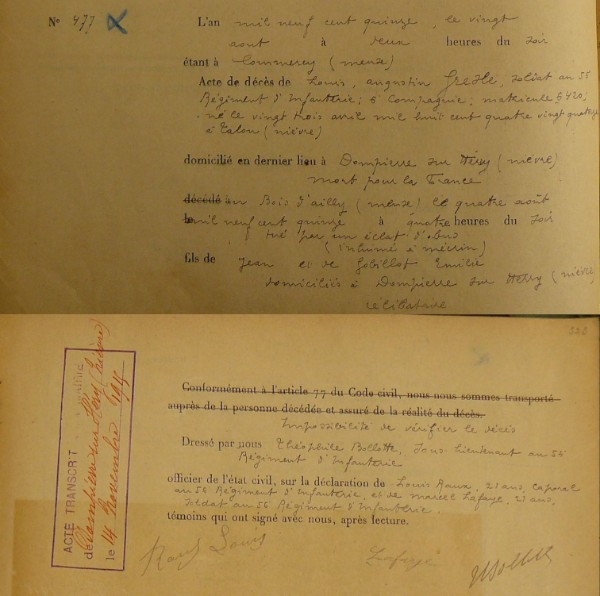 N° 477 L'an mil neuf cent quinze, le vingt
aout à deux heures du soir
étant à Commercy (meuse)
Acte de décès de Louis, augustin soldat au 56
Régiment d'Infanterie; 6 Compagnie; matricule 6420;
né le vingt trois avril mil huit cent quatre vingt quatorze
à Talon (nièvre)
domicilié en dernier lieu à Dompierre sur Héry (nièvre)
mort pour la France
décédé au Bois d'ailly (meuse) le quatre août
le mil neuf cent quinze à quatre heures du soir
tué par un éclat d'obus
(inhumé à mécrin)
fils de Jean et de Gobillot Emilie
domiciliés à Dompierre sur Héry (nièvre)
célibataire
322
Conformément à l'article 77 du Code civil, nous nous sommes transporté
auprès de la personne décédée et assuré de la réalité du décès.
Impossibilité de vérifier le décès
Dressé par nous Théophile Bollotte, Sous-Lieutenant au 56
Régiment d'Infanterie
officier de l'état civil, sur la déclaration de Louis Raux, 21 ans, caporal
au 56 Régiment d'Infanterie, et de marcel Lafaye, 21 ans,
soldat au 56 Régiment d'Infanterie.
témoins qui ont signé avec nous, après lecture.
Raux Louis Lafaye
ACTE TRANSCRIT
Dompierre sur Héry (Nièvre)
le 14 novembre